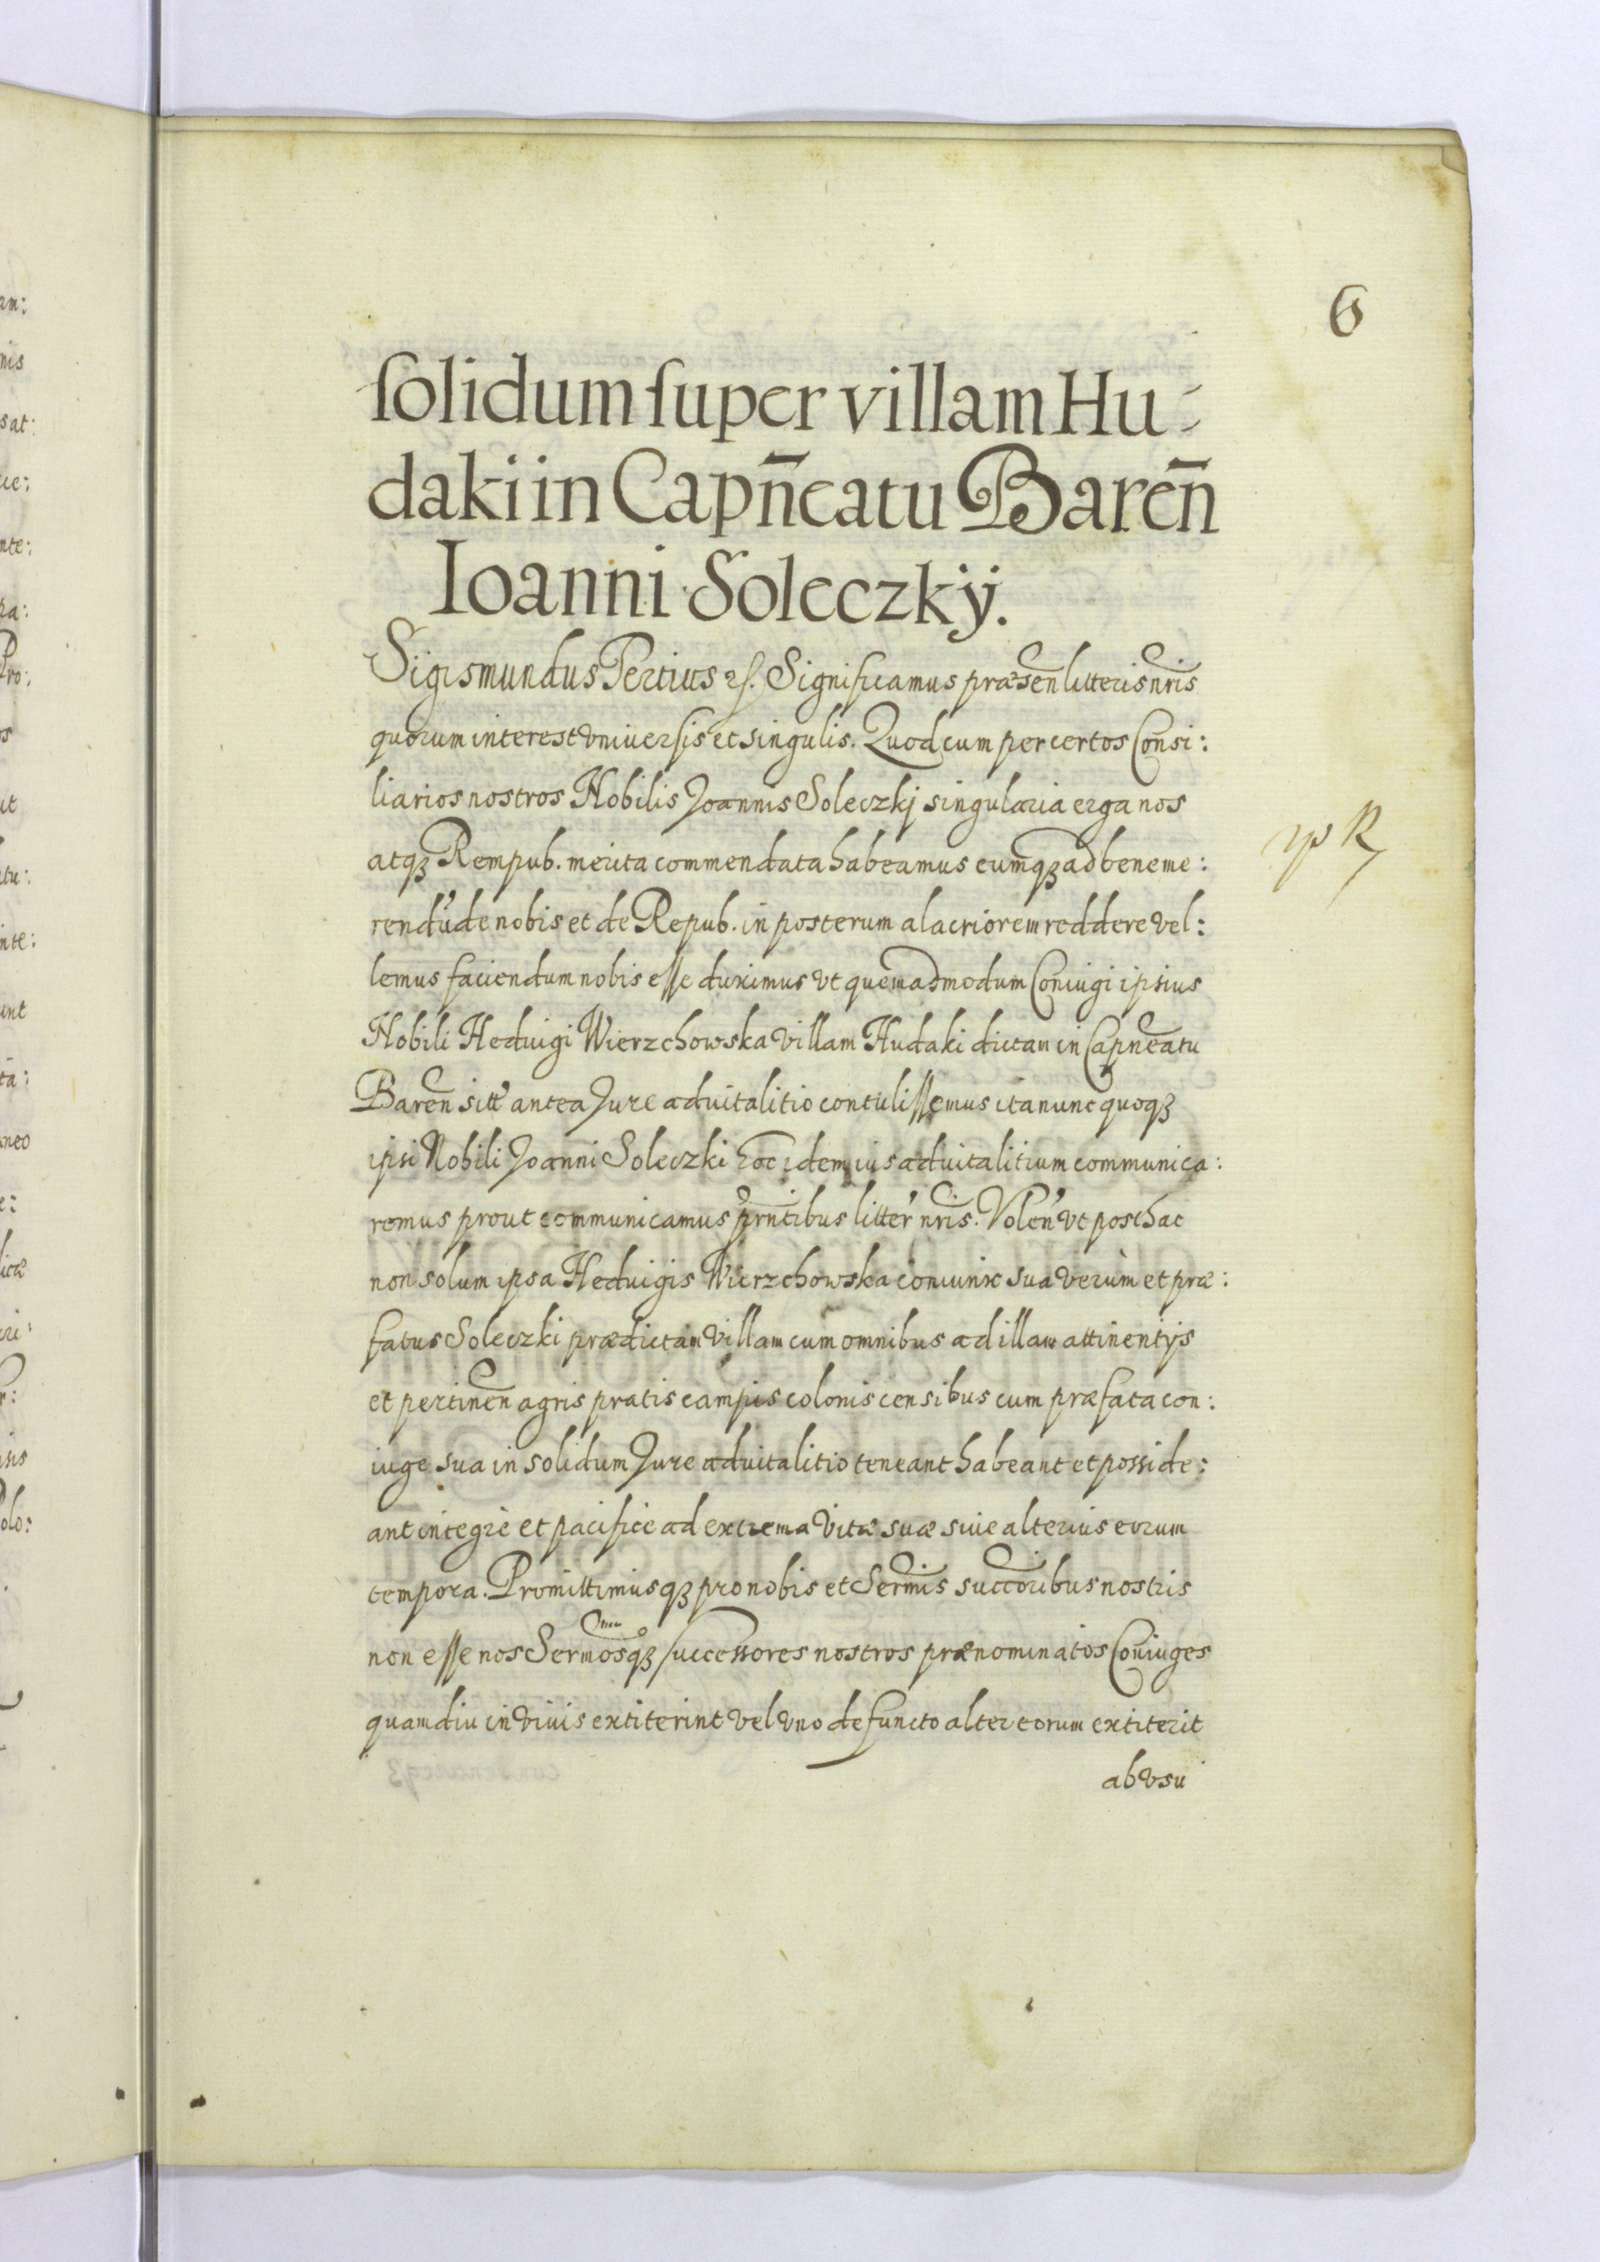 6
solidum super villam Hu-
daki in Capn̄eatu Baren̄
Ioanni Soleczkÿ.
Sigismundus Tertius rs. Significamus præsen̄ litteris nr̄is
quorum interest vniuersis et singulis. Quod cum per certos Consi:
liarios nostros Nobilis Joannis Soleczkj singularia erga nos
atqʒ Rempub. merita commendata habeamus eumqʒ ad beneme:
rendū de nobis et de Repub. in posterum alacriorem reddere vel:
lemus faciendum nobis esse duximus vt quemadmodum Coniugi ipsius
Nobili Heduigi Wierzchowska villam Hudaki dictam in Capn̄eatu
Baren̄ sitt' antea Jure aduitalitio contulissemus ita nunc quoqʒ
ipsi Nobili Joanni Soleczki hoc idem ius aduitalitium communica:
remus prout communicamus prn̄tibus litter' nr̄is. Volen' vt posthac
non solum ipsa Heduigis Wierzchowska coniunx sua verùm et præ:
fatus Soleczki prædictam villam cum omnibus ad illam attinentijs
et pertinen̄ agris pratis campis colonis censibus cum præfata con:
iuge sua in solidum Jure aduitalitio teneant habeant et posside:
ant integrè et pacificè ad extrema vitæ suæ siue alterius eorum
tempora. Promittimusqʒ pro nobis et Serm̄is succ̄oribus nostris
non esse nos Serm̄osqʒ successores nostros prænominatos Coniuges
quamdiu in viuis extiterint vel vno defuncto alter eorum extiterit
ab vsu